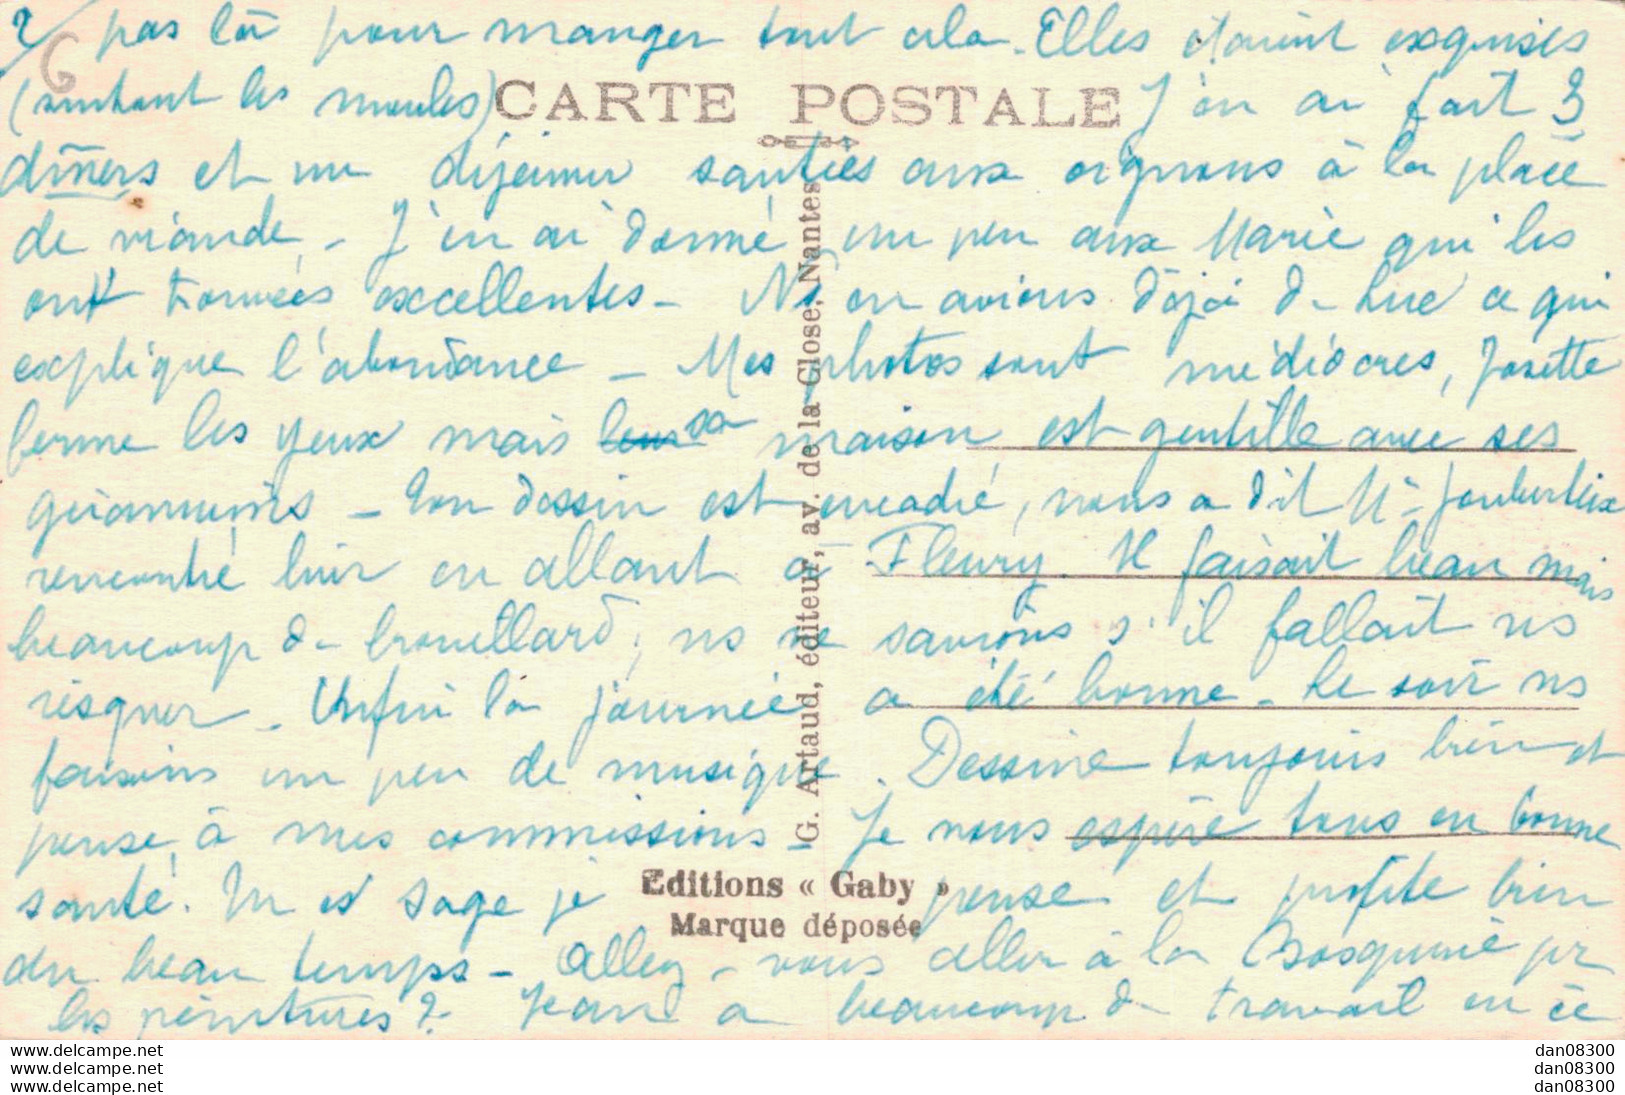 2/ pas là pour manger tout cela. Elles étaient exquises
(surtout les moules)
CARTE POSTALE
J'en ai fait 3
dîners et un déjeuner sautées aux oignons à la place
de viande. J'en ai donné un peu aux Marie qui les
ont trouvées excellentes - Ns en avions déjà d- Luc ce qui
explique l'abondance - Mes photos sont médiocres, Josette
ferme les yeux mais sa maison est gentille avec ses
géraniums - Ton dessin est encadré, nous a dit Mr
rencontré hier en allant à Fleury. Il faisait beau mais
beaucoup d- brouillard, ns ne savions s'il fallait ns
risquer - Enfin la journée a été bonne - Le soir ns
faisons un peu de musique. Dessine toujours bien et
pense à mes commissions - Je vous espère tous en bonne
santé. Tu es sage je pense et profite bien
Editions « Gaby »
Marque déposée
du beau temps - Allez-vous aller à la pr
les peintures ? Jean a beaucoup d- travail en ce
G. Artaud, éditeur, av. de la Close, Nantes
www.delcampe.net
www.delcampe.net
www.delcampe.net
dan08300
dan08300
dan08300